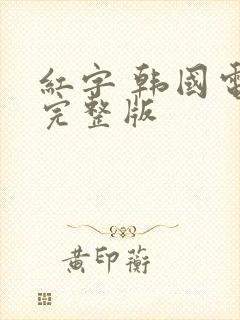 紅字 韩國電
完整版
黄印蘅